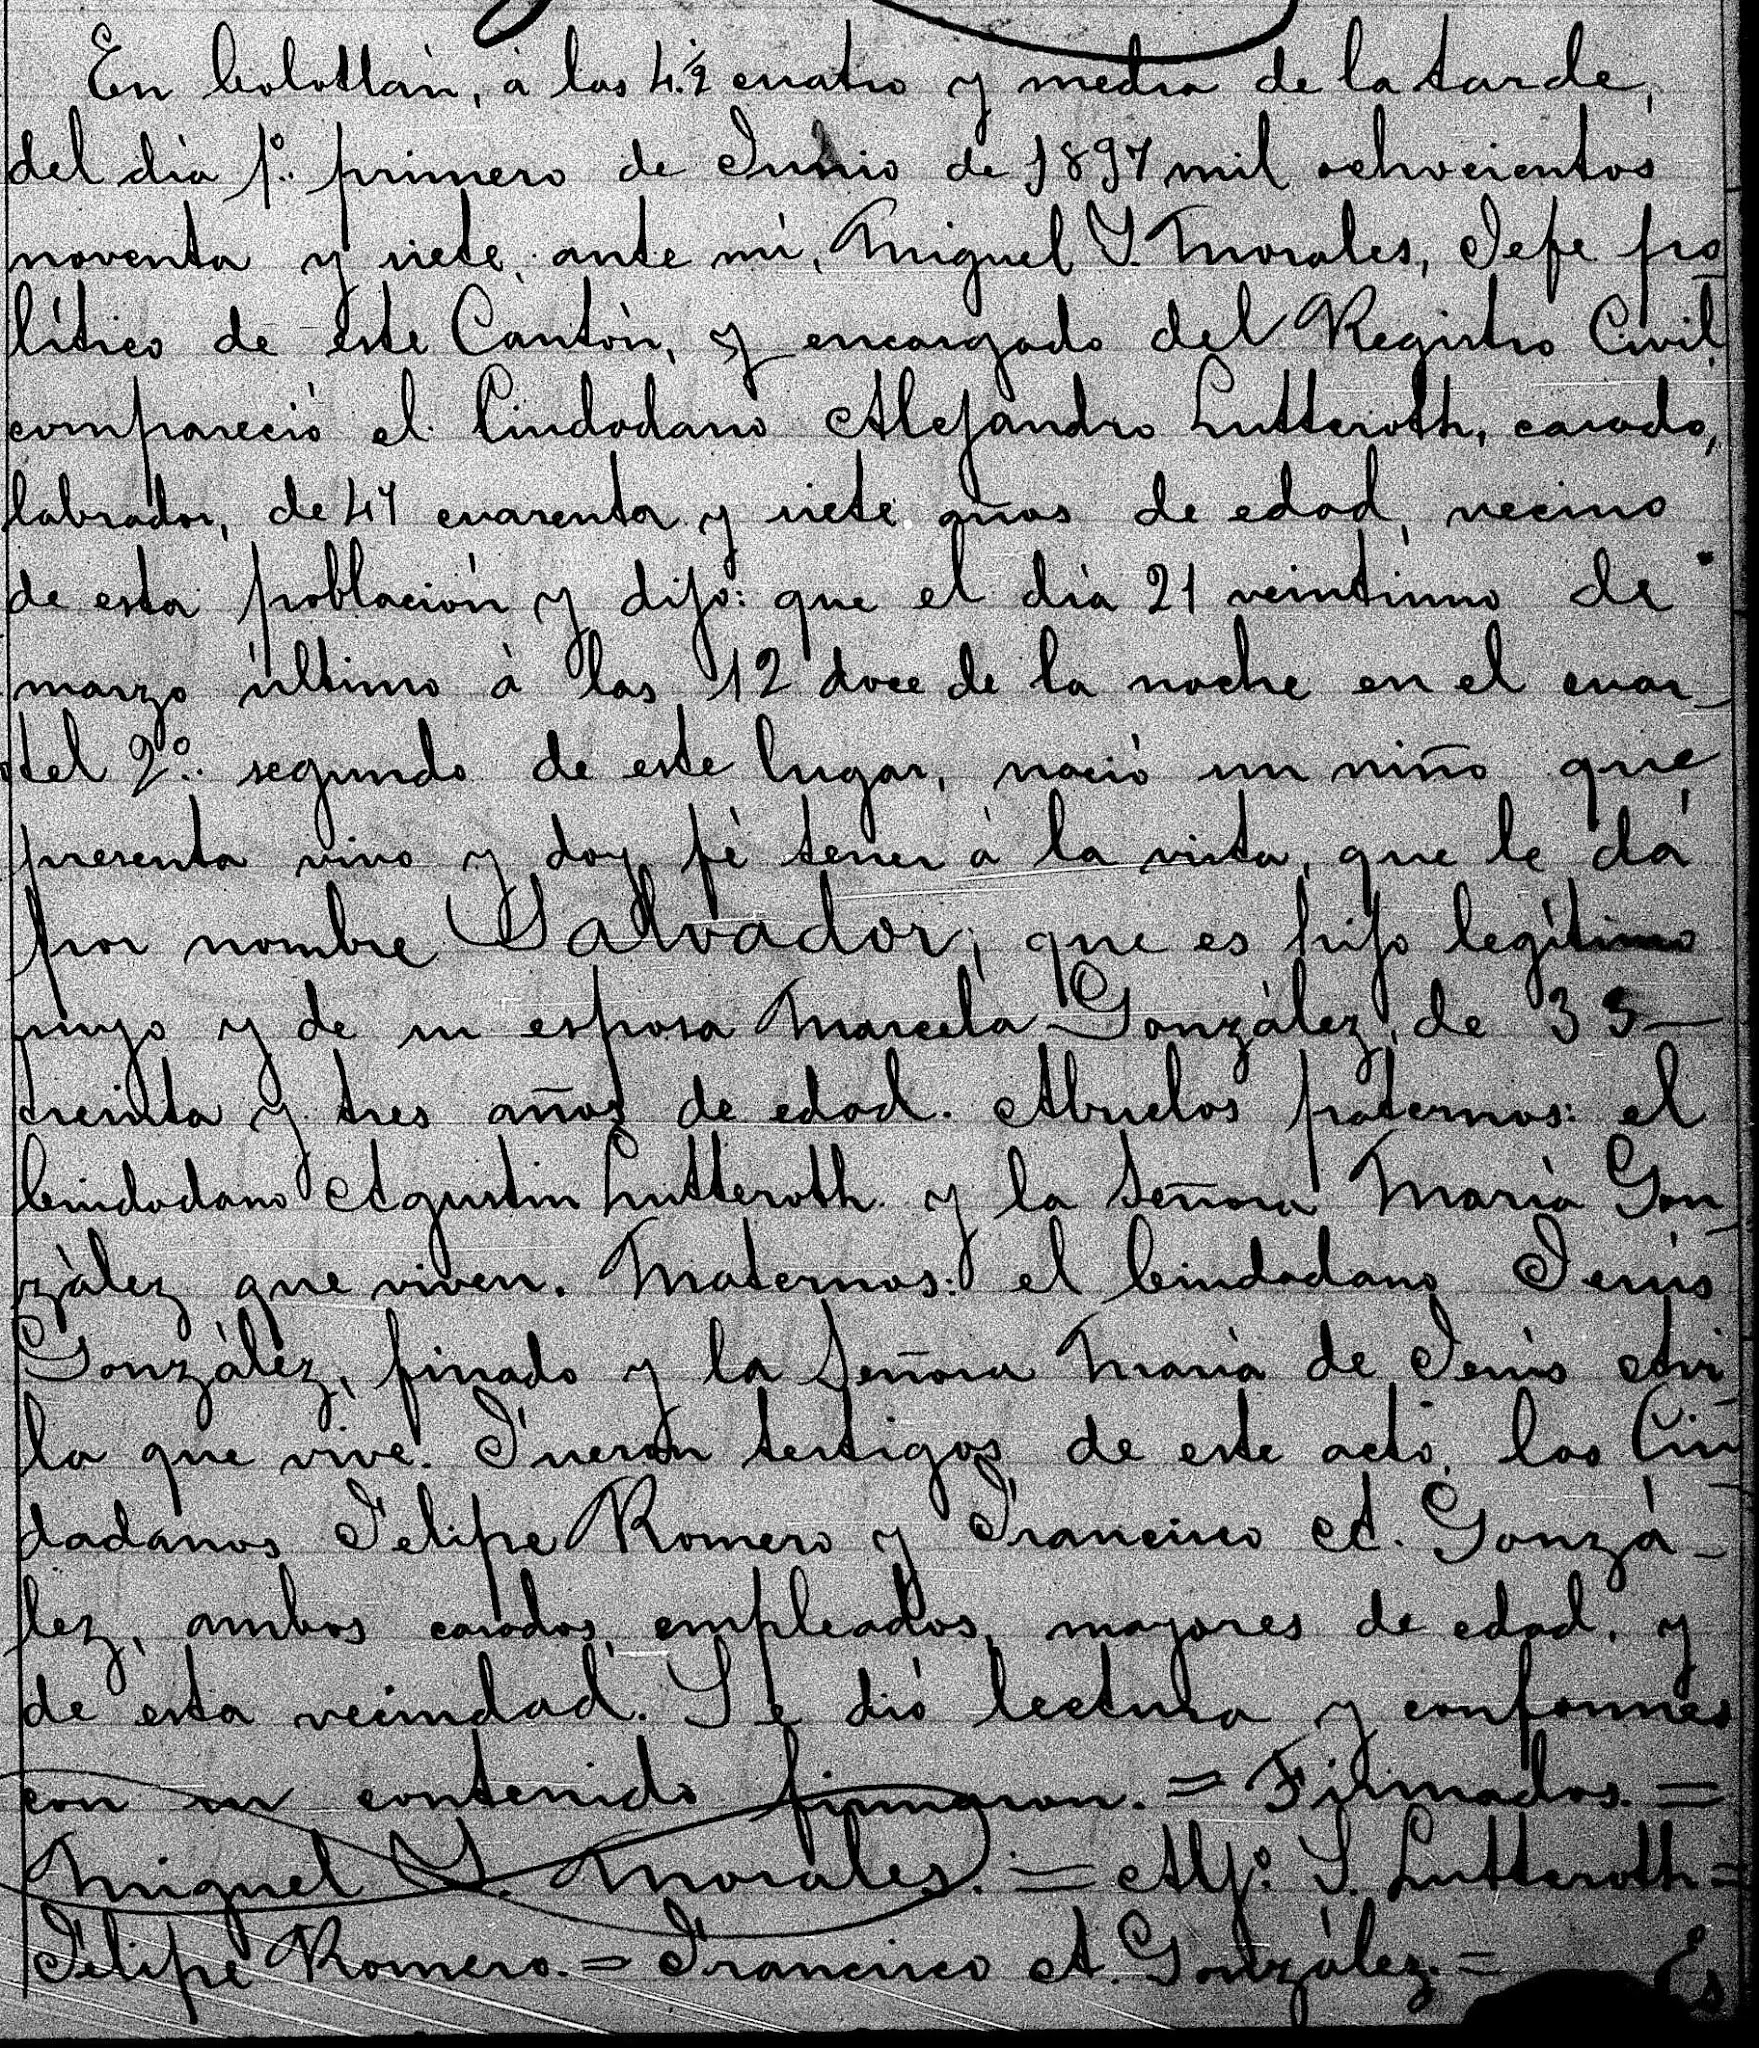 En Colotlán, á las 4.½ cuatro y media de la tarde,
del dia 1º. primero de Junio de 1897 mil ochocientos
noventa y siete, ante mi, Miguel Y. Morales, Jefe po
lítico de este Cantón, y encargado del Registro Civil,
compareció el Ciudadano Alejandro Lutteroth, casado,
labrador, de 47 cuarenta y siete años de edad, vecino
de esta población y dijo: que el dia 21 veintiuno de
marzo último á las 12 doce de la noche en el cuar_
tel 2º. segundo de este lugar, nació un niño que
presenta vivo y doy fé tener á la vista, que le dá
por nombre Salvador; que es hijo legítimo
suyo y de su esposa Marcela González, de 33—
treinta y tres años de edad. Abuelos paternos: el
Ciudadano Agustin Lutteroth y la Señora Maria Gon_
zález que viven. Maternos: el Ciudadano Jesús
González, finado y la Señora Maria de Jesús Avi
la que vive. Fueron testigos de este acto, los Ciu
dadanos Felipe Romero y Francisco A. Gonzá_
lez, ambos casados, empleados, mayores de edad, y
de esta vecindad. Se dió lectura y conformes
con su contenido firmaron. = Firmados. =
Miguel Y. Morales. = Aljº. Y. Lutteroth =
Felipe Romero. = Francisco A. González. = Es